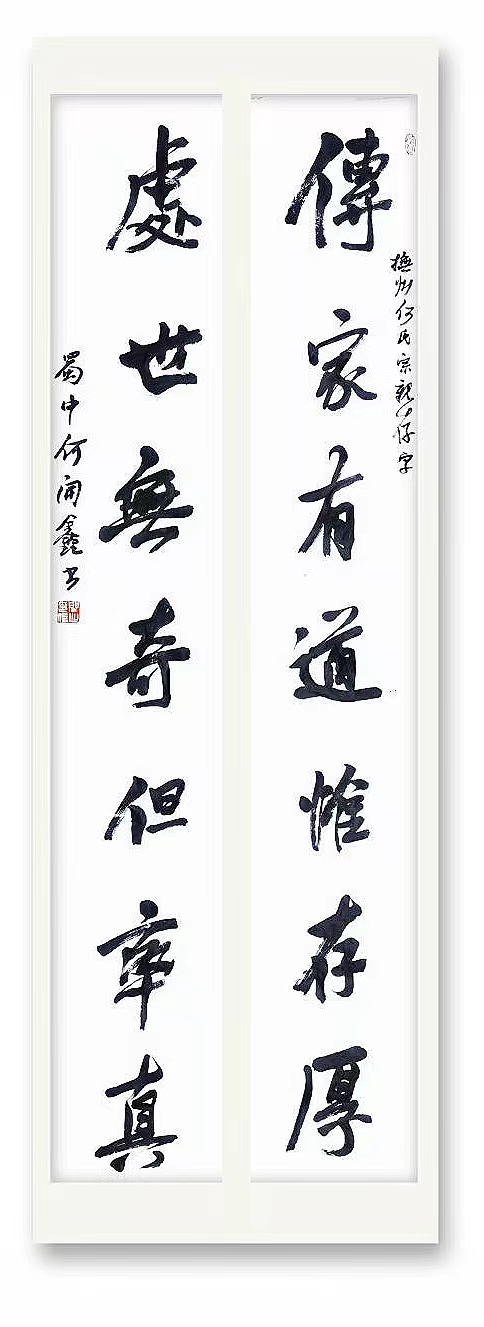 傳家有道惟存厚
處世無奇但率真
撫州何氏宗親小仔字
蜀中何開鑫书